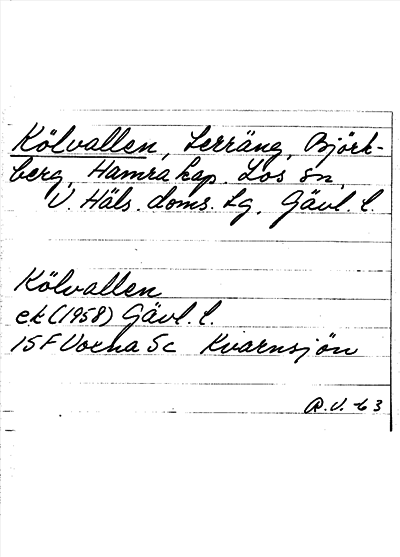 Kölvallen, Terräng, Björk-
berg, Hamra kap. Los sn,
V. Häls. doms. Lg. Gävl. l.
Kölvallen
ek (1958) Gävl. l.
15F Voxna 5c Kvarnsjön
R.V. -63